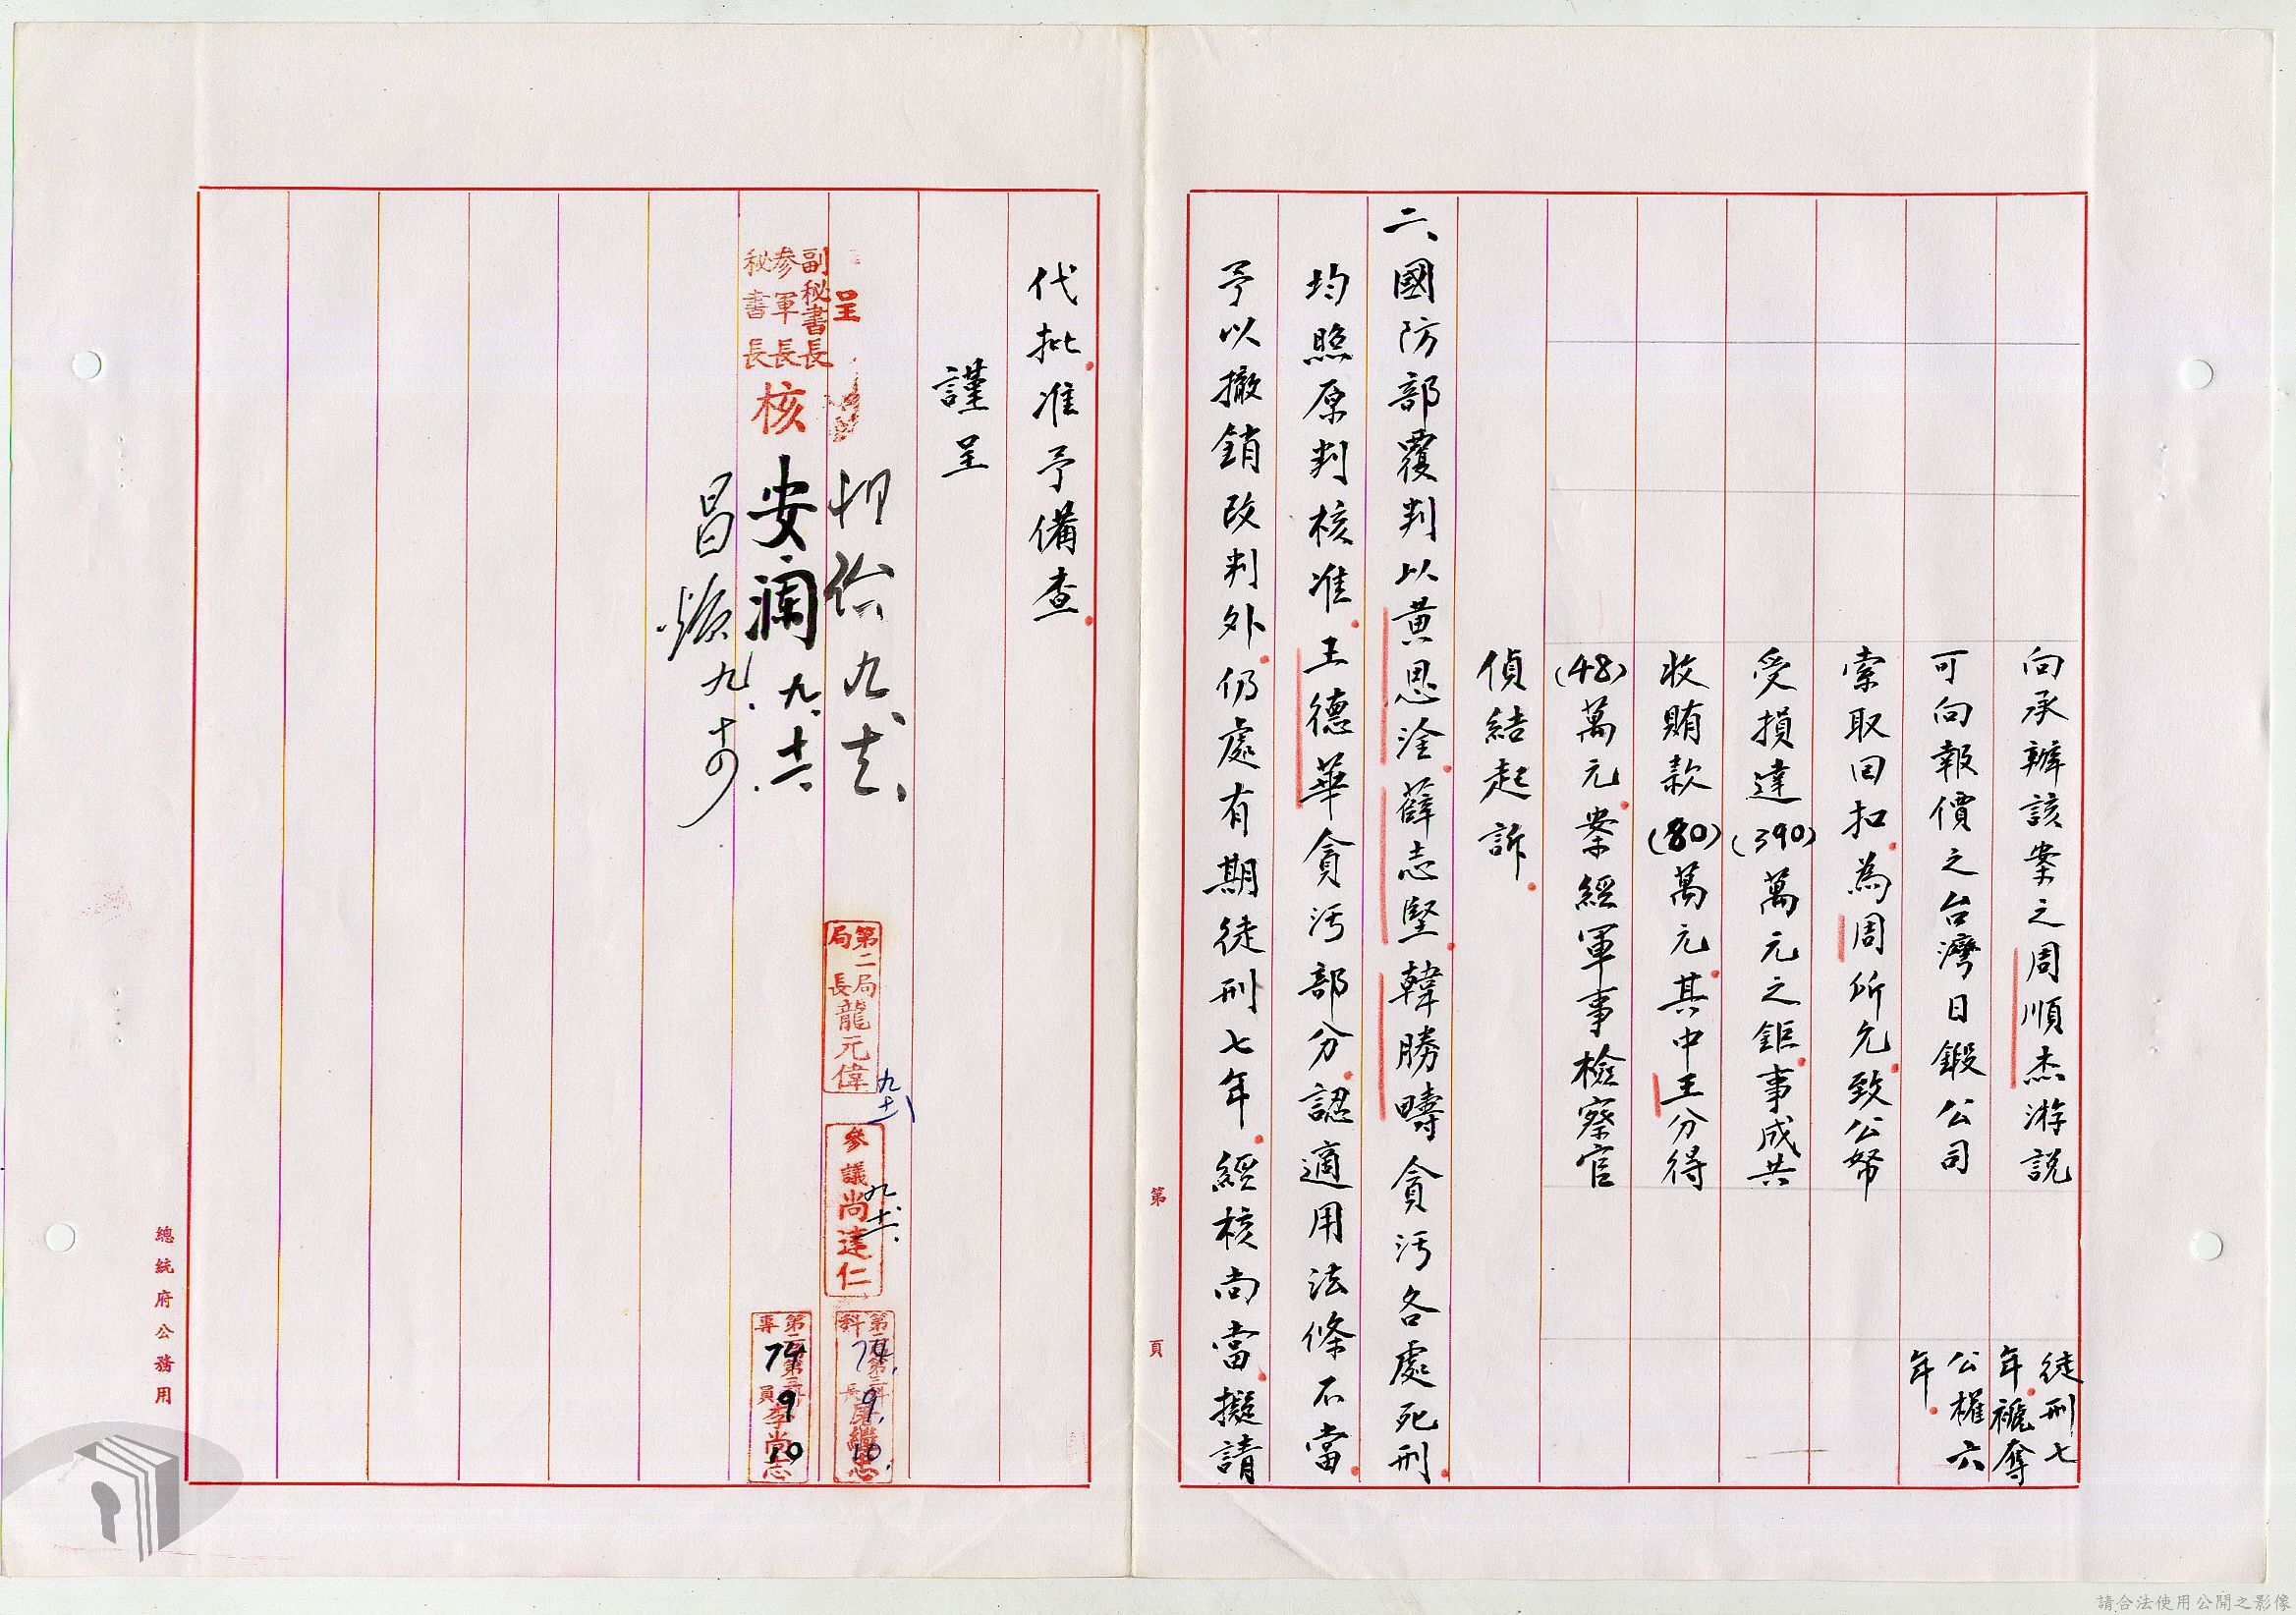 向承辦該案之周順杰游説
可向報價之台灣日鍛公司
索取回扣為周所允致公帑
受損達(390)萬元之鉅事成共
收賄款(80)萬元其中王分得
(48)萬元案經軍事檢察官
偵結起訴
徒刑七
年褫奪
公權六
年
二、國防部覆判以黄恩淦薛志堅韓勝疇貪污各處死刑
均照原判核准王德華貪污部分認適用法條不當
予以撤銷改判外仍處有期徒刑七年經核尚當擬請
第 頁
代批准予備查
謹呈
呈
副秘書長
參軍長
秘書長
核
安瀾九.十六.
昌煥九.
第二局
局長龍元偉
參議尚達仁
74.9.10.
專員李尚志
74 9 10
總統府公務用
請合法使用公開之影像